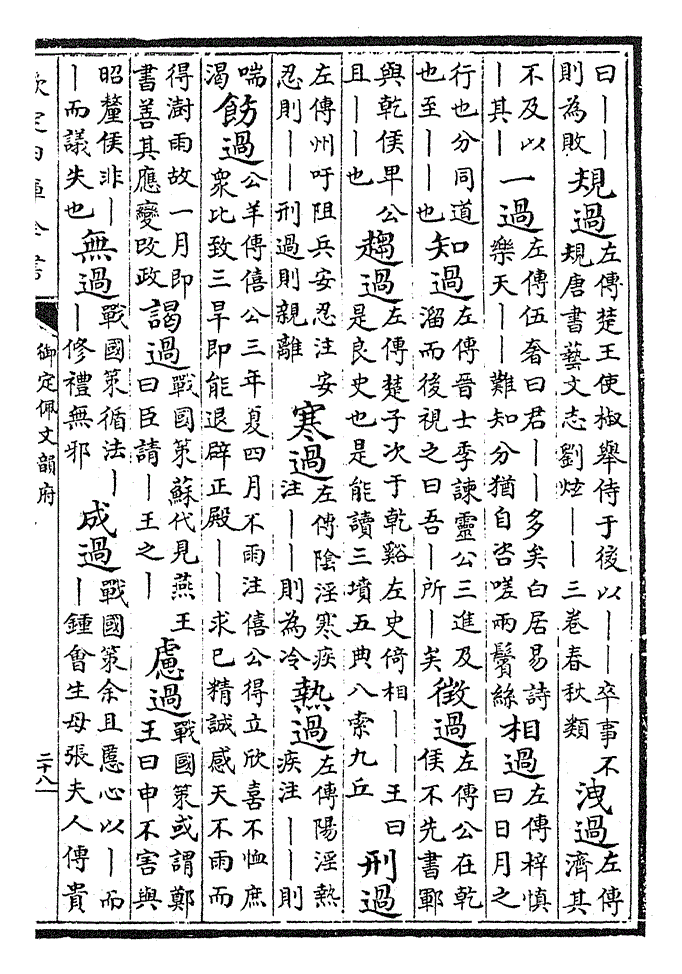 曰——
則為敗
規過
左傳楚王使椒舉侍于後以——卒事不
規唐書藝文志劉炫——三卷春秋類
洩過
左傳
濟其
不及以
—其—
一過
左傳伍奢曰君——多矣白居易詩
樂天——難知分猶自咨嗟兩鬢絲
相過
左傳梓慎
曰日月之
行也分同道
也至——也
知過
左傳晉士季諫靈公三進及
溜而後視之曰吾—所—矣
徵過
左傳公在乾
侯不先書鄆
與乾侯早公
且——也
趨過
左傳楚子次于乾谿左史倚相——王曰
是良史也是能讀三墳五典八索九丘
刑過
左傳州吁阻兵安忍注安
忍則——刑過則親離
寒過
左傳陰淫寒疾
注——則為冷
熱過
左傳陽淫熱
疾注——則
喘
渴
飭過
公羊傳僖公三年夏四月不雨注僖公得立欣喜不恤庶
衆比致三旱即能退辟正殿——求己精誠感天不雨而
得澍雨故一月即
書善其應變改政
謁過
戰國策蘇代見燕王
曰臣請—王之—
慮過
戰國策或謂鄭
王曰申不害與
昭釐侯非—
—而議失也
無過
戰國策循法—
—修禮無邪
成過
戰國策余且慝心以—而
—鍾會生母張夫人傳貴
欽定四庫全書
御定佩文韻府
二十八